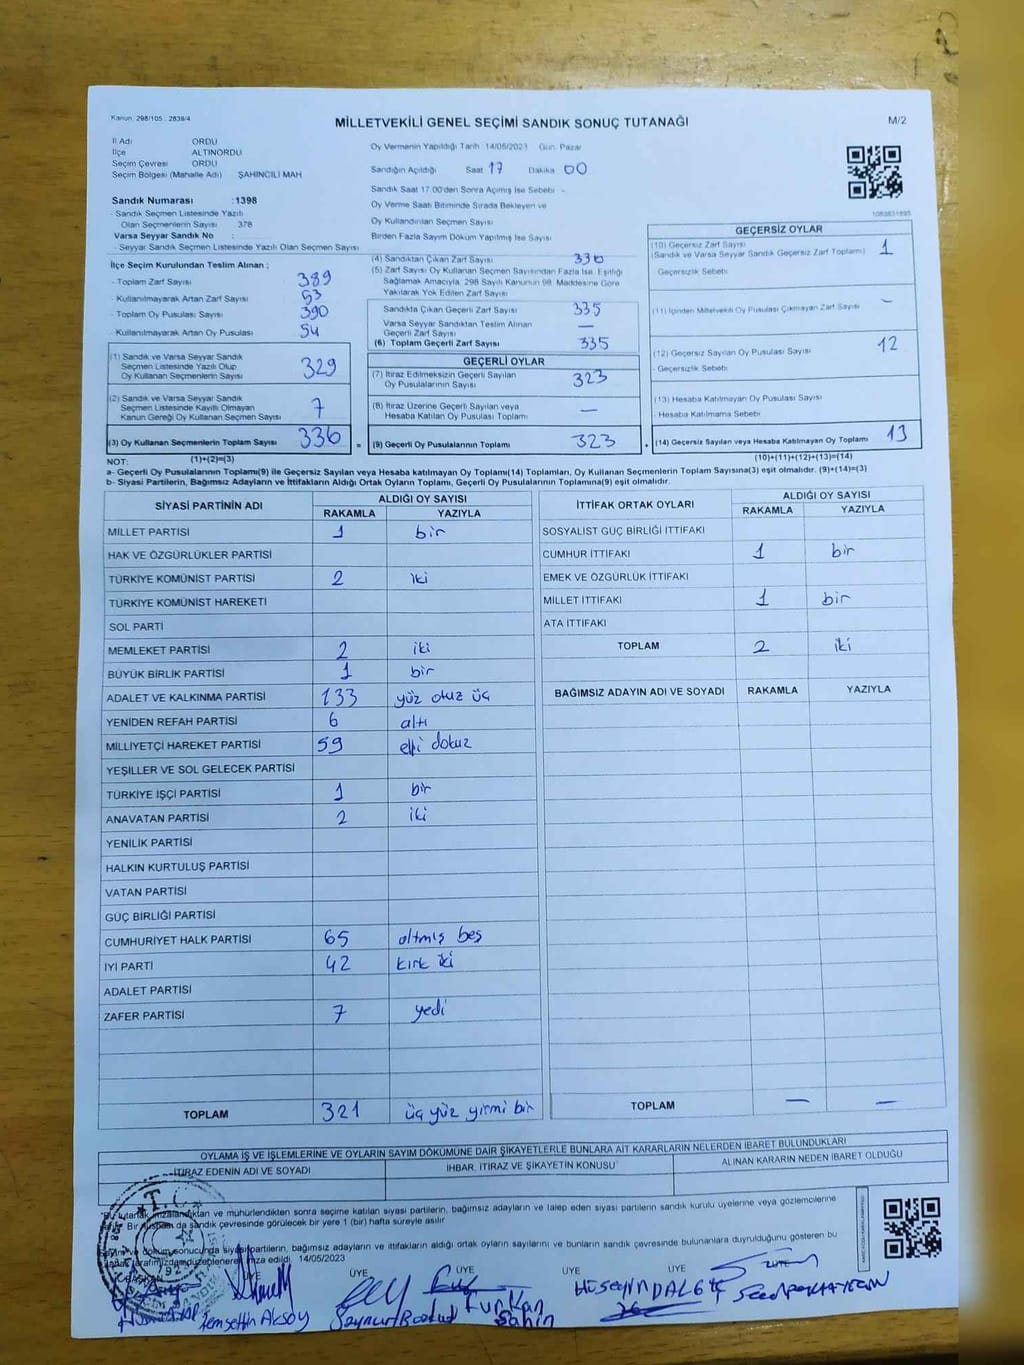 Kanun: 298/105 , 2839/4
MİLLETVEKİLİ GENEL SEÇİMİ SANDIK SONUÇ TUTANAĞI
M/2
İl Adı ORDU
İlçe ALTINORDU
Seçim Çevresi ORDU
Seçim Bölgesi (Mahalle Adı) ŞAHİNCİLİ MAH
Oy Vermenin Yapıldığı Tarih 14/05/2023 Gün: Pazar
Sandığın Açıldığı Saat 17 Dakika 00
Sandık Saat 17.00'den Sonra Açımış İse Sebebi -
Oy Verme Saati Bitiminde Sırada Bekleyen ve
Oy Kullandırılan Seçmen Sayısı
Birden Fazla Sayım Döküm Yapılmış İse Sayısı
Sandık Numarası :1398
- Sandık Seçmen Listesinde Yazılı
Olan Seçmenlerin Sayısı 378
Varsa Seyyar Sandık No :
- Seyyar Sandık Seçmen Listesinde Yazılı Olan Seçmen Sayısı
İlçe Seçim Kurulundan Teslim Alınan ;
- Toplam Zarf Sayısı 389
- Kullanılmayarak Artan Zarf Sayısı 53
- Toplam Oy Pusulası Sayısı 390
- Kullanılmayarak Artan Oy Pusulası 54
(1) Sandık ve Varsa Seyyar Sandık
Seçmen Listesinde Yazılı Olup
Oy Kullanan Seçmenlerin Sayısı 329
(2) Sandık ve Varsa Seyyar Sandık
Seçmen Listesinde Kayıtlı Olmayan
Kanun Gereği Oy Kullanan Seçmen Sayısı 7
(3) Oy Kullanan Seçmenlerin Toplam Sayısı 336
(1)+(2)=(3)
(4) Sandıktan Çıkan Zarf Sayısı 336
(5) Zarf Sayısı Oy Kullanan Seçmen Sayısından Fazla İse, Eşitliği
Sağlamak Amacıyla, 298 Sayılı Kanunun 98. Maddesine Göre
Yakılarak Yok Edilen Zarf Sayısı
Sandıkta Çıkan Geçerli Zarf Sayısı 335
Varsa Seyyar Sandıktan Teslim Alınan
Geçerli Zarf Sayısı —
(6) Toplam Geçerli Zarf Sayısı 335
GEÇERLİ OYLAR
(7) İtiraz Edilmeksizin Geçerli Sayılan
Oy Pusulalarının Sayısı 323
(8) İtiraz Üzerine Geçerli Sayılan veya
Hesaba Katılan Oy Pusulası Sayısı —
= (9) Geçerli Oy Pusulalarının Toplamı 323 +
GEÇERSİZ OYLAR
(10) Geçersiz Zarf Sayısı 1
(Sandık ve Varsa Seyyar Sandık Geçersiz Zarf Toplamı)
Geçersizlik Sebebi:
(11) İçinden Milletvekili Oy Pusulası Çıkmayan Zarf Sayısı -
(12) Geçersiz Sayılan Oy Pusulası Sayısı 12
- Geçersizlik Sebebi
(13) Hesaba Katılmayan Oy Pusulası Sayısı
- Hesaba Katılmama Sebebi
(14) Geçersiz Sayılan veya Hesaba Katılmayan Oy Toplamı 13
(10)+(11)+(12)+(13)=(14)
NOT:
a- Geçerli Oy Pusulalarının Toplamı(9) ile Geçersiz Sayılan veya Hesaba katılmayan Oy Toplamı(14) Toplamları, Oy Kullanan Seçmenlerin Toplam Sayısına(3) eşit olmalıdır. (9)+(14)=(3)
b- Siyasi Partilerin, Bağımsız Adayların ve İttifakların Aldığı Ortak Oyların Toplamı, Geçerli Oy Pusulalarının Toplamına(9) eşit olmalıdır.
SİYASİ PARTİNİN ADI ALDIĞI OY SAYISI
RAKAMLA YAZIYLA
MİLLET PARTİSİ 1 bir
HAK VE ÖZGÜRLÜKLER PARTİSİ
TÜRKİYE KOMÜNİST PARTİSİ 2 iki
TÜRKİYE KOMÜNİST HAREKETİ
SOL PARTİ
MEMLEKET PARTİSİ 2 iki
BÜYÜK BİRLİK PARTİSİ 1 bir
ADALET VE KALKINMA PARTİSİ 133 yüz otuz üç
YENİDEN REFAH PARTİSİ 6 altı
MİLLİYETÇİ HAREKET PARTİSİ 59 elli dokuz
YEŞİLLER VE SOL GELECEK PARTİSİ
TÜRKİYE İŞÇİ PARTİSİ 1 bir
ANAVATAN PARTİSİ 2 iki
YENİLİK PARTİSİ
HALKIN KURTULUŞ PARTİSİ
VATAN PARTİSİ
GÜÇ BİRLİĞİ PARTİSİ
CUMHURİYET HALK PARTİSİ 65 altmış beş
İYİ PARTİ 42 kırk iki
ADALET PARTİSİ
ZAFER PARTİSİ 7 yedi
TOPLAM 321 üç yüz yirmi bir
İTTİFAK ORTAK OYLARI ALDIĞI OY SAYISI
RAKAMLA YAZIYLA
SOSYALİST GÜÇ BİRLİĞİ İTTİFAKI
CUMHUR İTTİFAKI 1 bir
EMEK VE ÖZGÜRLÜK İTTİFAKI
MİLLET İTTİFAKI 1 bir
ATA İTTİFAKI
TOPLAM 2 iki
BAĞIMSIZ ADAYIN ADI VE SOYADI RAKAMLA YAZIYLA
TOPLAM — —
OYLAMA İŞ VE İŞLEMLERİNE VE OYLARIN SAYIM DÖKÜMÜNE DAİR ŞİKAYETLERLE BUNLARA AİT KARARLARIN NELERDEN İBARET BULUNDUKLARI
İTİRAZ EDENİN ADI VE SOYADI İHBAR, İTİRAZ VE ŞİKAYETİN KONUSU ALINAN KARARIN NEDEN İBARET OLDUĞU
imzalandıktan ve mühürlendikten sonra seçime katılan siyasi partilerin, bağımsız adayların ve talep eden siyasi partilerin sandık kurulu üyelerine veya gözlemcilerine
Bir da sandık çevresinde görülecek bir yere 1 (bir) hafta süreyle asılır
döküm sonucunda siyasi partilerin, bağımsız adayların ve ittifakların aldığı ortak oyların sayılarını ve bunların sandık çevresinde bulunanlara duyrulduğunu gösteren bu
tarafımızdan düzenlenerek imza edildi. 14/05/2023
BAŞKAN ÜYE ÜYE ÜYE ÜYE ÜYE
T.C.
Şemsettin Aksoy
Furkan Şahin
HÜSEYİN DALGIÇ